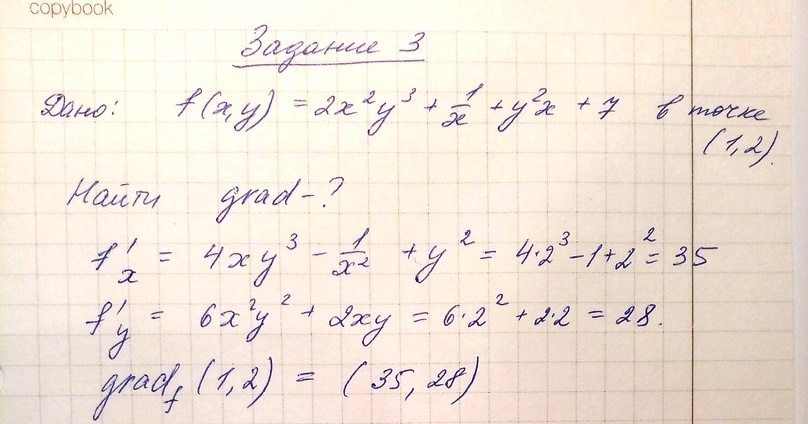 copybook
Задание 3
Дано: f(x,y) = 2x²y³ + 1/x + y²x + 7 в точке
(1,2).
Найти grad-?
f'x = 4xy³ - 1/x² + y² = 4·2³ - 1 + 2² = 35
f'y = 6x²y² + 2xy = 6·2² + 2·2 = 28.
grad f (1,2) = (35, 28)